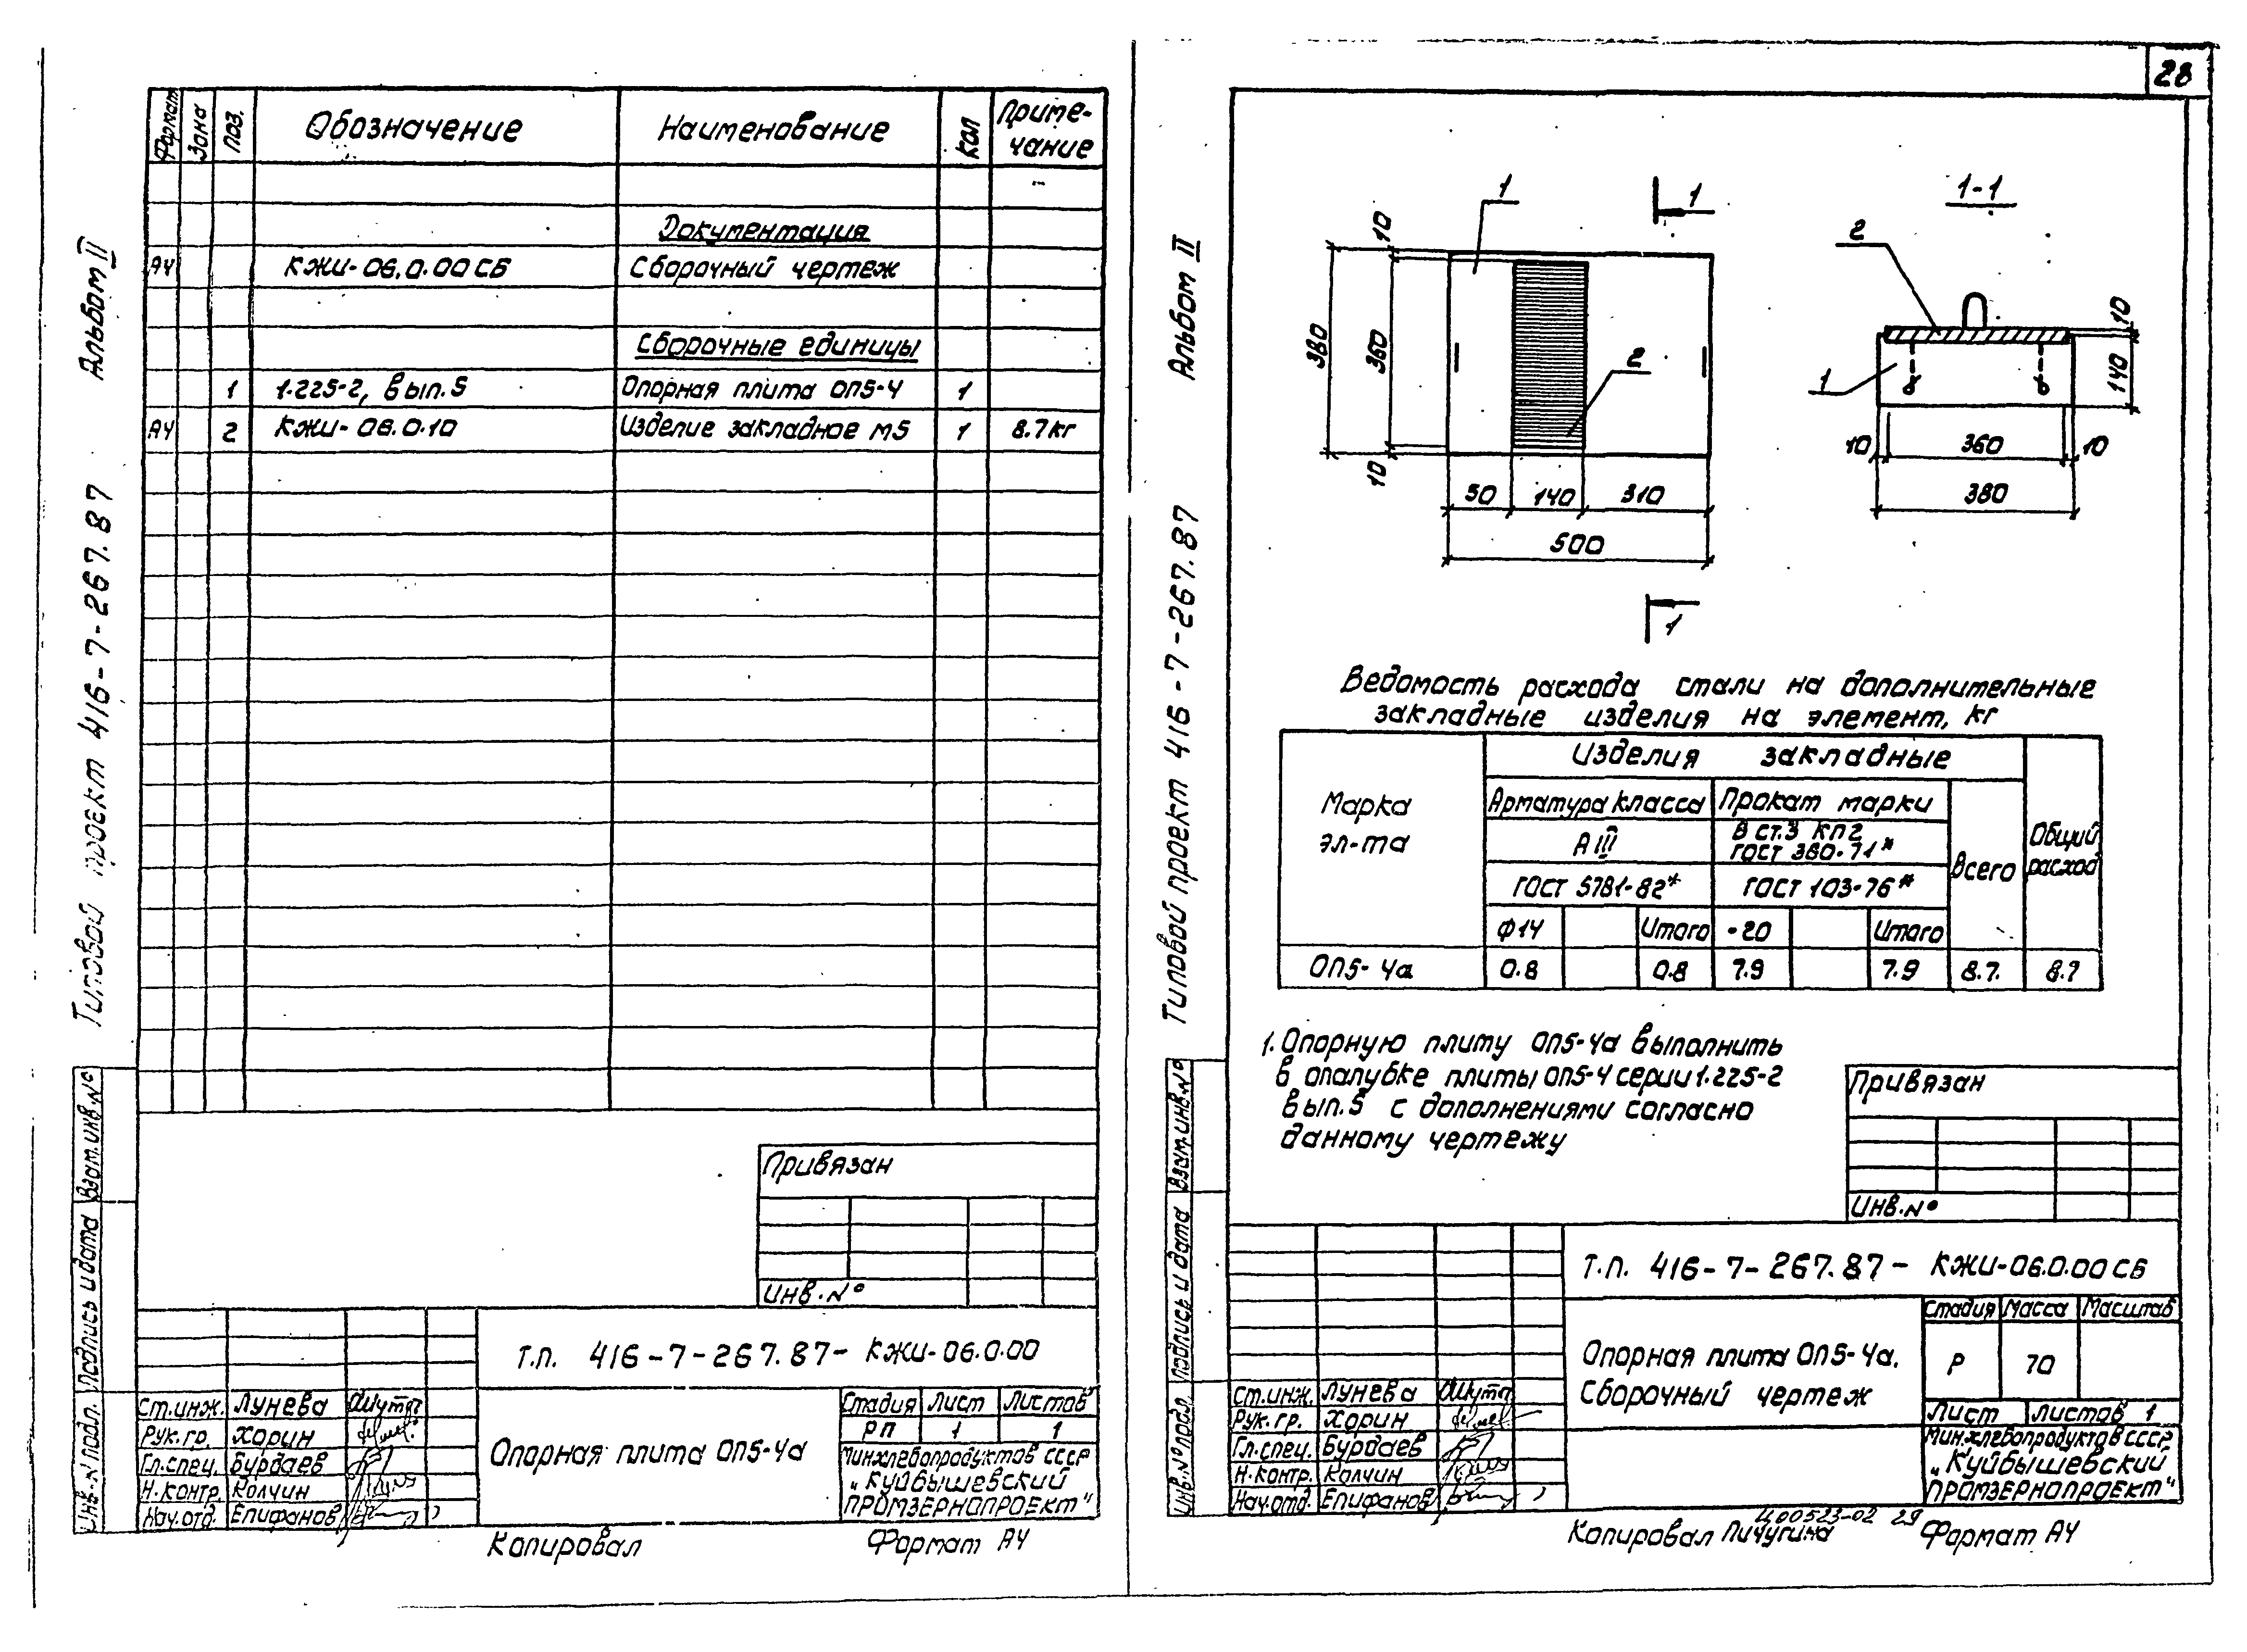 Альбом II
Типовой проект 416-7-267.87
Формат
Зона
Поз.
Обозначение
Наименование
Кол
Приме-
чание
Документация
А4 КЖИ-06.0.00СБ Сборочный чертеж
Сборочные единицы
1 1.225-2, вып.5 Опорная плита ОП5-4 1
А4 2 КЖИ-06.0.10 Изделие закладное М5 1 8.7кг
Привязан
Инв.№
Взам.инв.№
Подпись и дата
Инв.№подл.
Т.П. 416-7-267.87- КЖИ-06.0.00
Ст.инж. Лунева
Рук.гр. Хорин
Гл.спец. Бурдаев
Н.контр. Колчин
Нач.отд. Епифанов
Опорная плита ОП5-4а
Стадия Лист Листов
РП 1 1
Минхлебопродуктов СССР
"Куйбышевский
Промзернопроект"
Копировал
Формат А4
28
Альбом II
Типовой проект 416-7-267.87
1
1
1-1
10
380
360
10
2
50 140 310
500
1
2
1
10
140
10 360 10
380
Ведомость расхода стали на дополнительные
закладные изделия на элемент, кг
Марка
эл-та
Изделия закладные
Арматура класса
Прокат марки
А III
В ст.3 кп2
ГОСТ 380-71*
ГОСТ 5781-82*
ГОСТ 103-76*
Всего
Общий
расход
Ф14 Итого -20 Итого
ОП5-4а 0.8 0.8 7.9 7.9 8.7. 8.7
1. Опорную плиту ОП5-4а выполнить
в опалубке плиты ОП5-4 серии 1.225-2
вып.5 с дополнениями согласно
данному чертежу
Привязан
Инв.№
Взам.инв.№
Подпись и дата
Инв.№подл.
Т.П. 416-7-267.87- КЖИ-06.0.00СБ
Ст.инж. Лунева
Рук.гр. Хорин
Гл.спец. Бурдаев
Н.контр. Колчин
Нач.отд. Епифанов
Опорная плита ОП5-4а.
Сборочный чертеж
Стадия Масса Масштаб
Р 70
Лист Листов 1
Минхлебопродуктов СССР
"Куйбышевский
Промзернопроект"
Ц00523-02 29
Копировал Пичугина
Формат А4